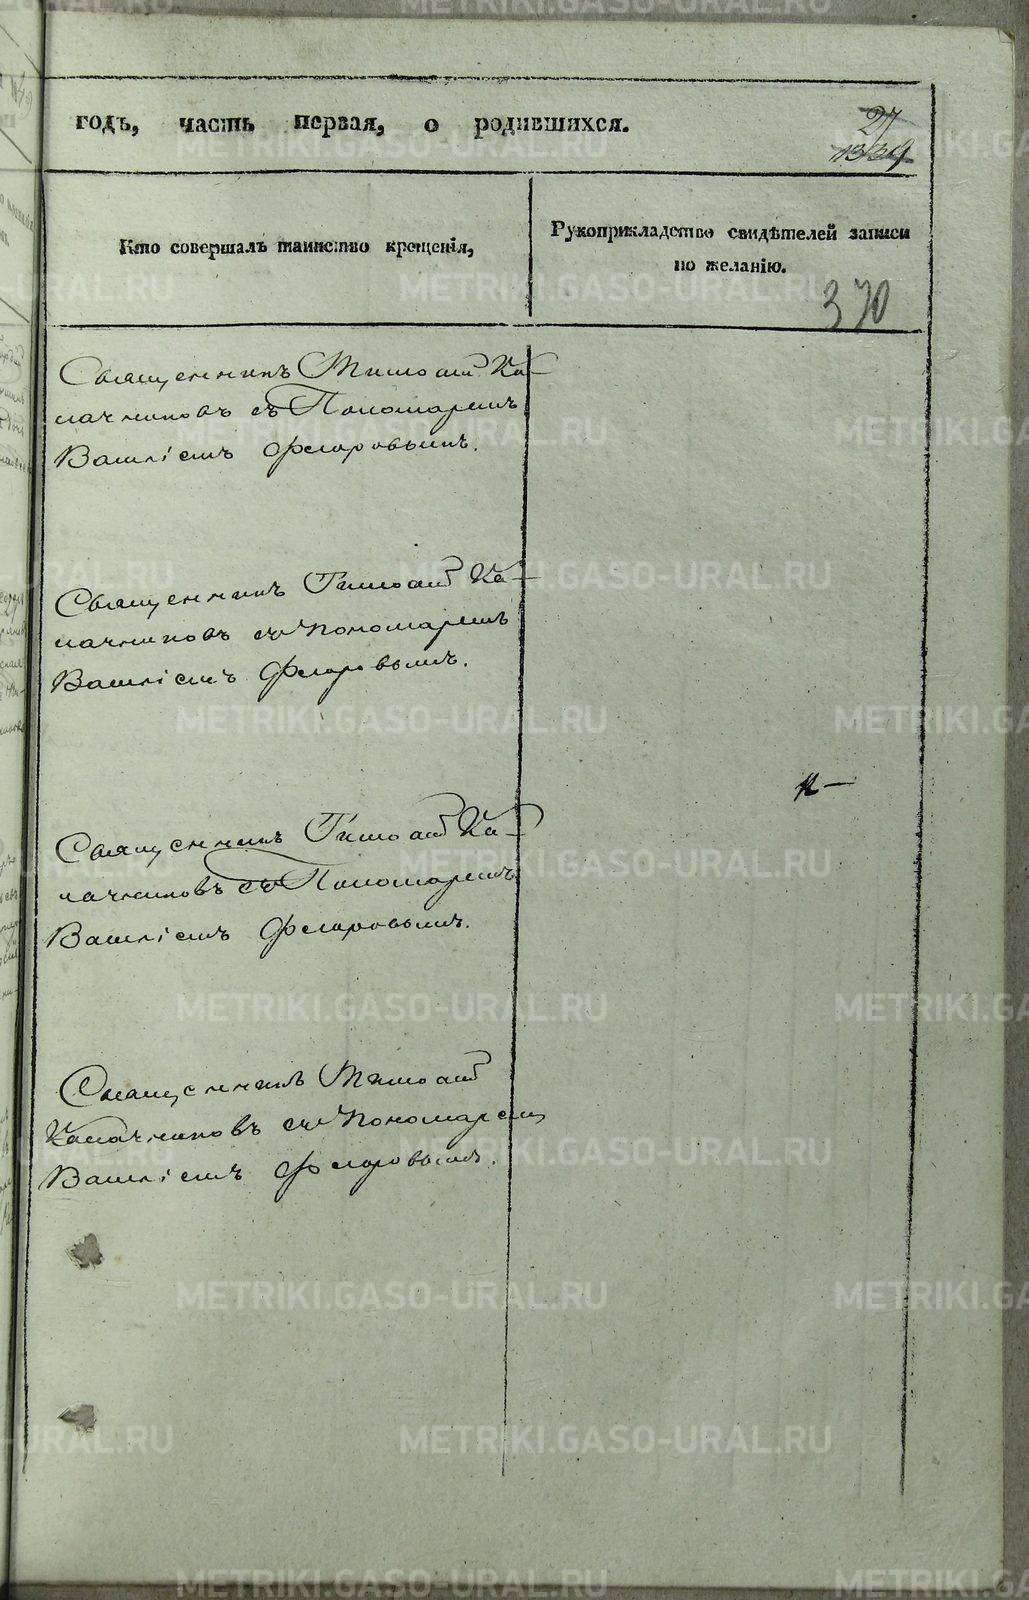 годъ, часть первая, о родившихся.
27
1339
Кто совершалъ таинство крещенія,
Рукоприкладство свидѣтелей записи
по желанію.
370
Священникъ Тимоѳей Ка-
лачниковъ съ Пономаремъ
Василіемъ Флоровымъ.
Священникъ Тимоѳей Ка-
лачниковъ съ Пономаремъ
Василіемъ Флоровымъ.
Священникъ Тимоѳей Ка-
лачниковъ съ Пономаремъ
Василіемъ Флоровымъ.
Священникъ Тимоѳей
Калачниковъ съ Пономаремъ
Василіемъ Флоровымъ.
METRIKI.GASO-URAL.RU